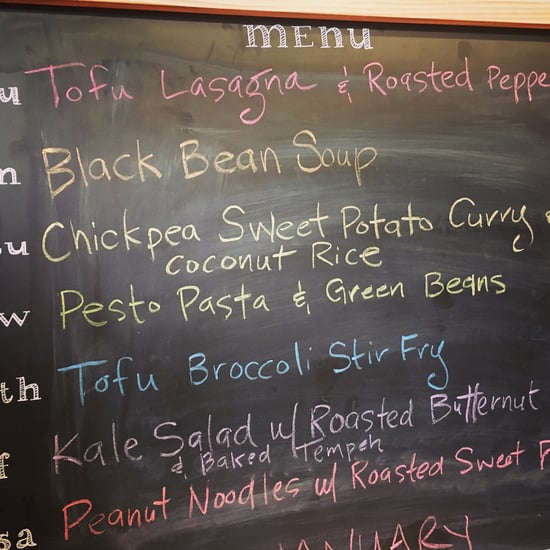 menu
u Tofu Lasagna & Roasted Peppe
n Black Bean Soup
tu Chickpea Sweet Potato Curry &
Coconut Rice
w Pesto Pasta & Green Beans
th Tofu Broccoli Stir Fry
f Kale Salad w/ Roasted Butternut
& Baked Tempeh
sa Peanut Noodles w/ Roasted Sweet P
JANUARY